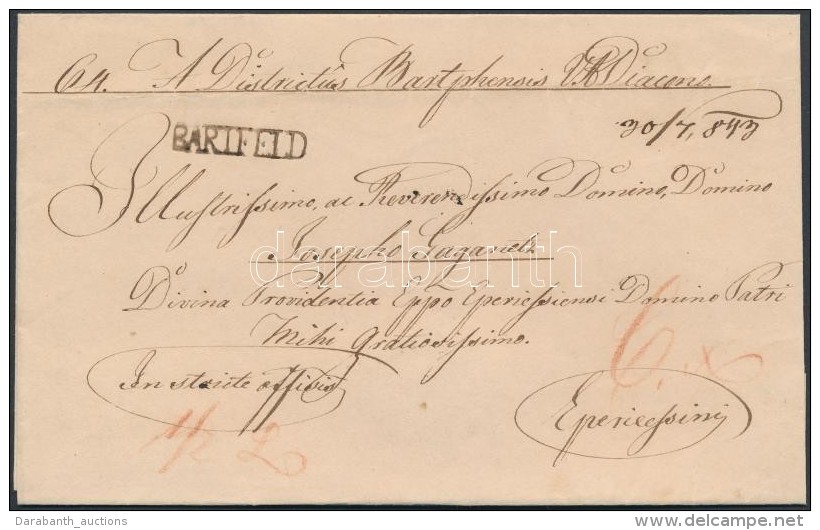 64. A Districtus Bartphensis VADiacono.
30/7, 843
BARTFELD
Illustrissimo, ac Reverendissimo Domino, Domino
Josepho Gaganetz
darabanth
Divina Providentia Eppo Eperiessiensi Domino Patri
Mihi Gratiosissimo.
In stricte officiosis
6. x
1/2 L
Eperiessini
Darabanth_auctions
www.delcampe.net